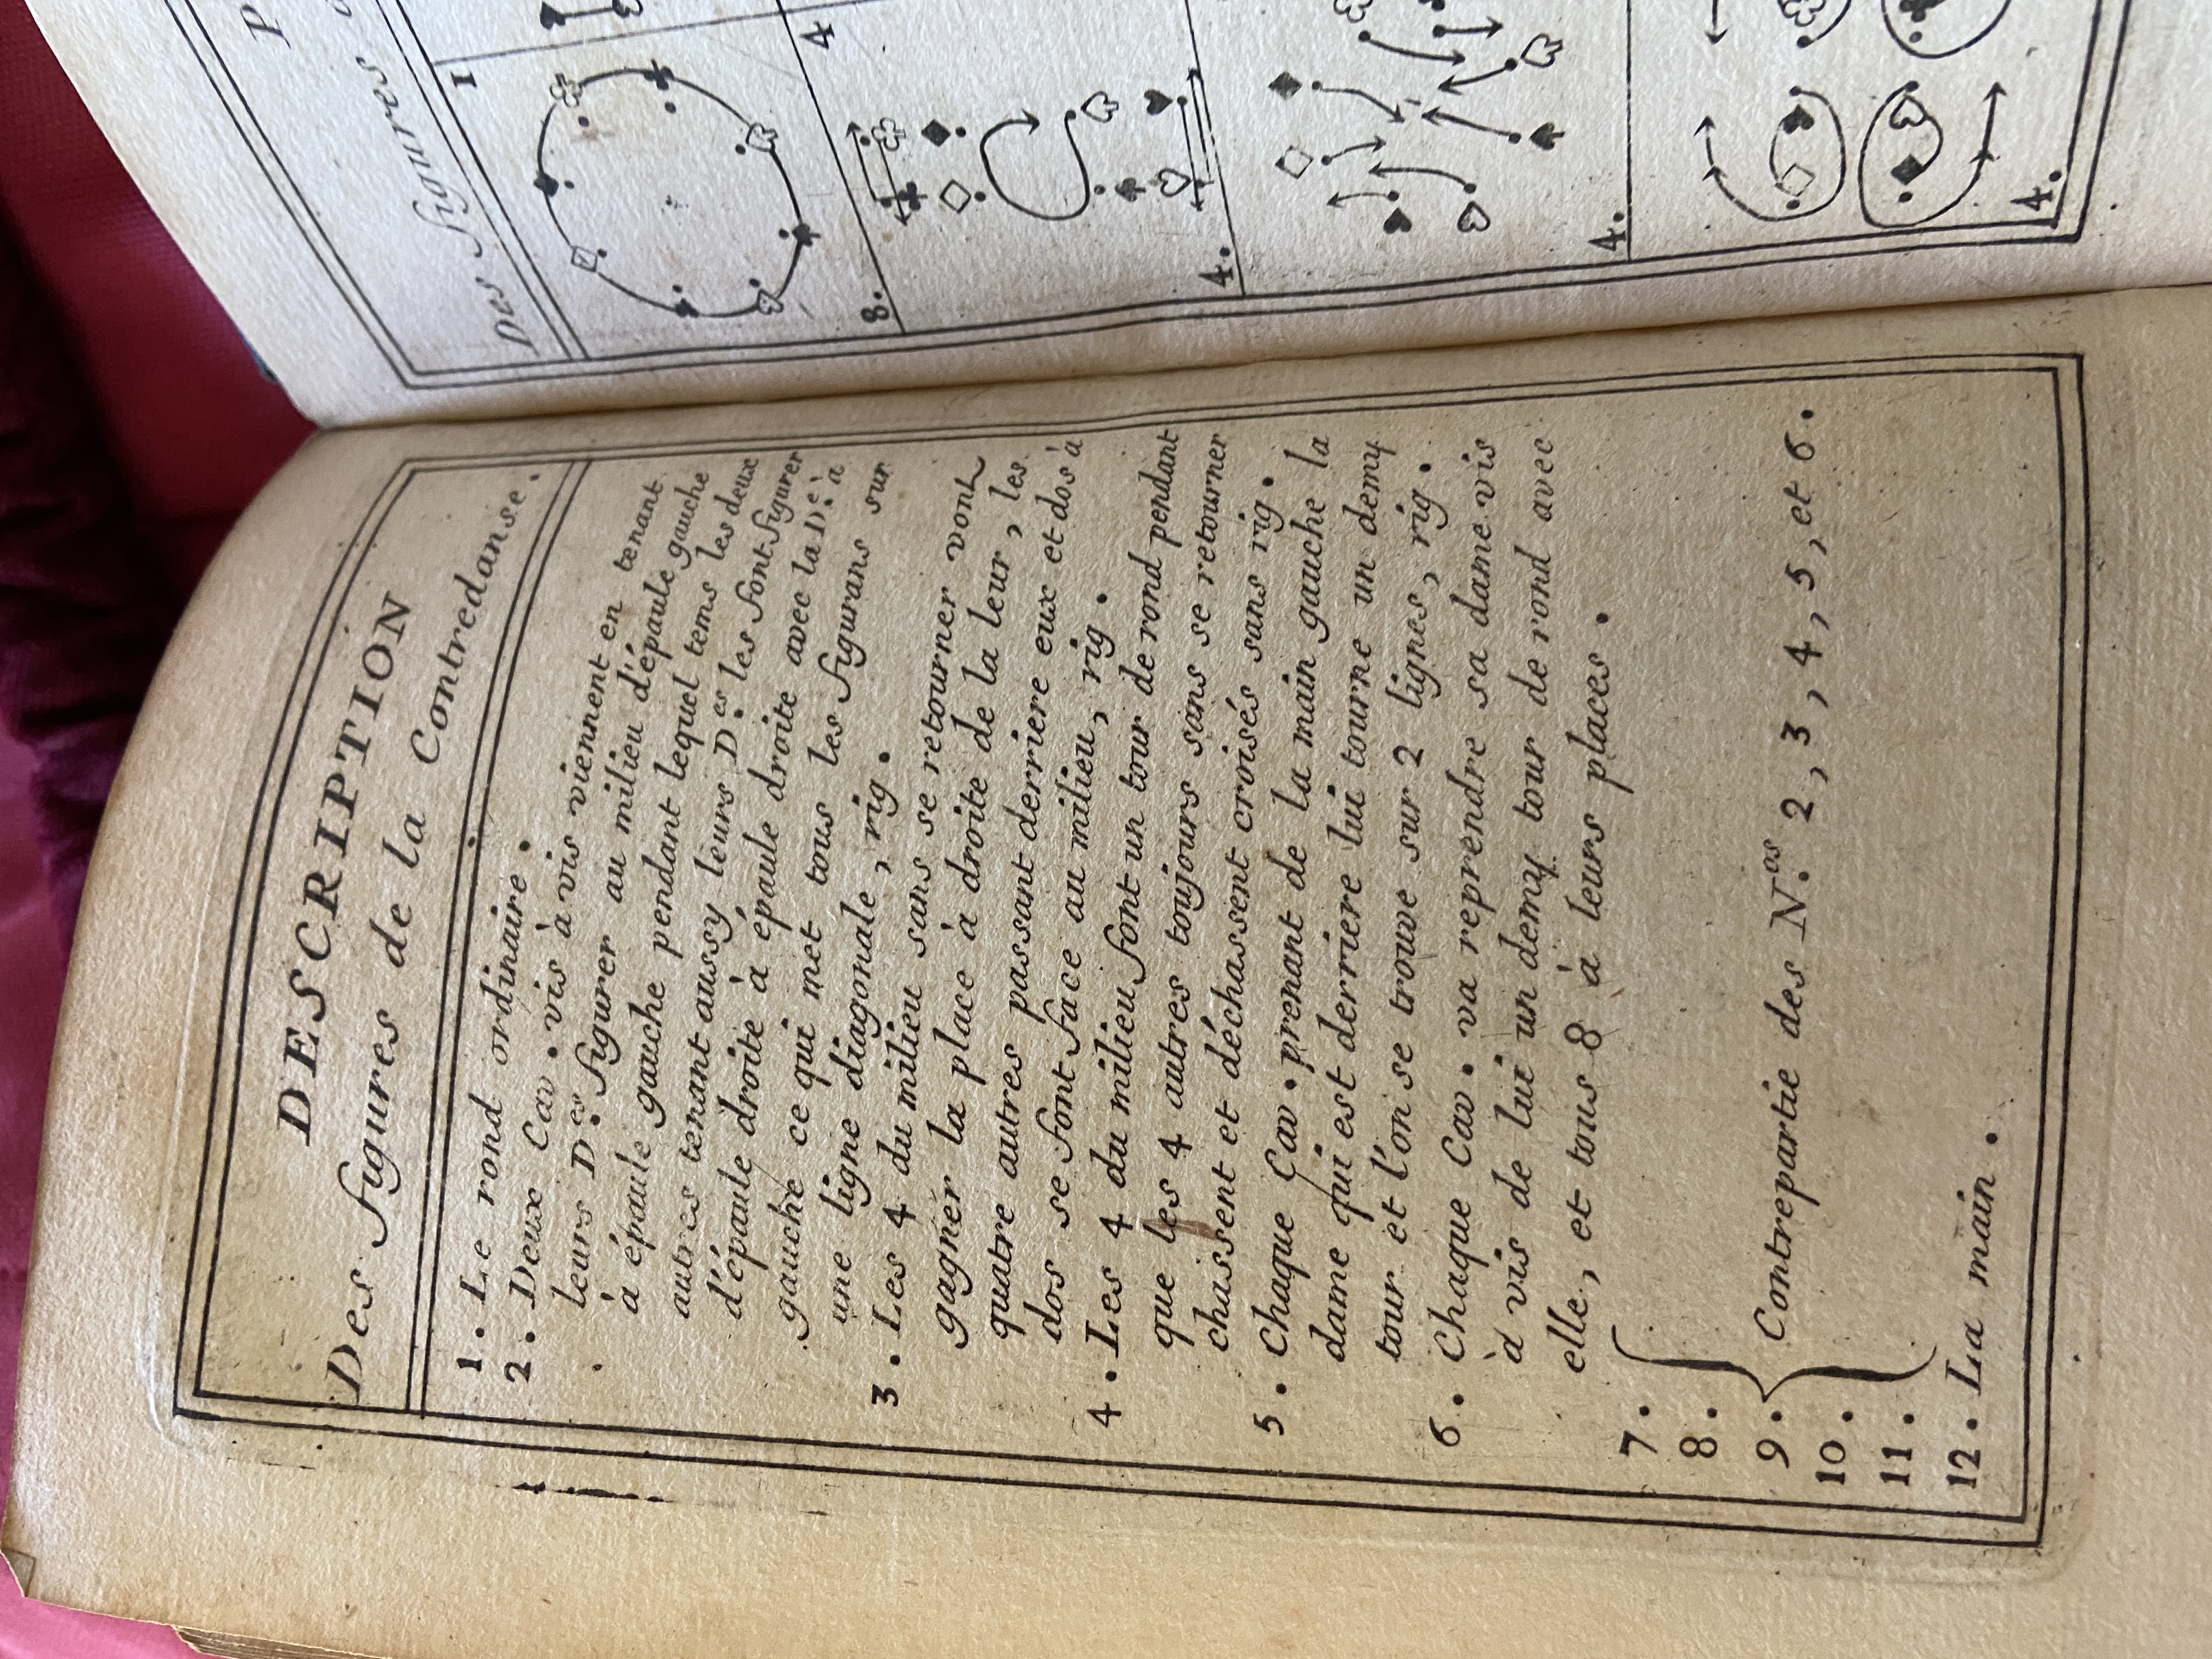 DESCRIPTION
Des figures de la Contredanse.
1. Le rond ordinaire.
2. Deux Cav. vis à vis viennent en tenant
leurs D.es figurer au milieu d'épaule gauche
à épaule gauche pendant lequel tems les deux
autres tenant aussy leurs D.es les font figurer
d'épaule droite à épaule droite avec la D.e à
gauche ce qui met tous les figurans sur
une ligne diagonale, rig.
3. Les 4 du milieu sans se retourner vont
gagner la place à droite de la leur, les
quatre autres passant derriere eux et dos à
dos se font face au milieu, rig.
4. Les 4 du milieu font un tour de rond pendant
que les 4 autres toujours sans se retourner
chassent et déchassent croisés sans rig.
5. Chaque Cav. prenant de la main gauche la
dame qui est derriere lui tourne un demy
tour et l'on se trouve sur 2 lignes, rig.
6. Chaque Cav. va reprendre sa dame vis
à vis de lui un demy tour de rond avec
elle, et tous 8 à leurs places.
7.
8.
9. Contrepartie des N.os 2, 3, 4, 5, et 6.
10.
11.
12. La main.
P
Des figures
1
8.
4
4.
4.
4.